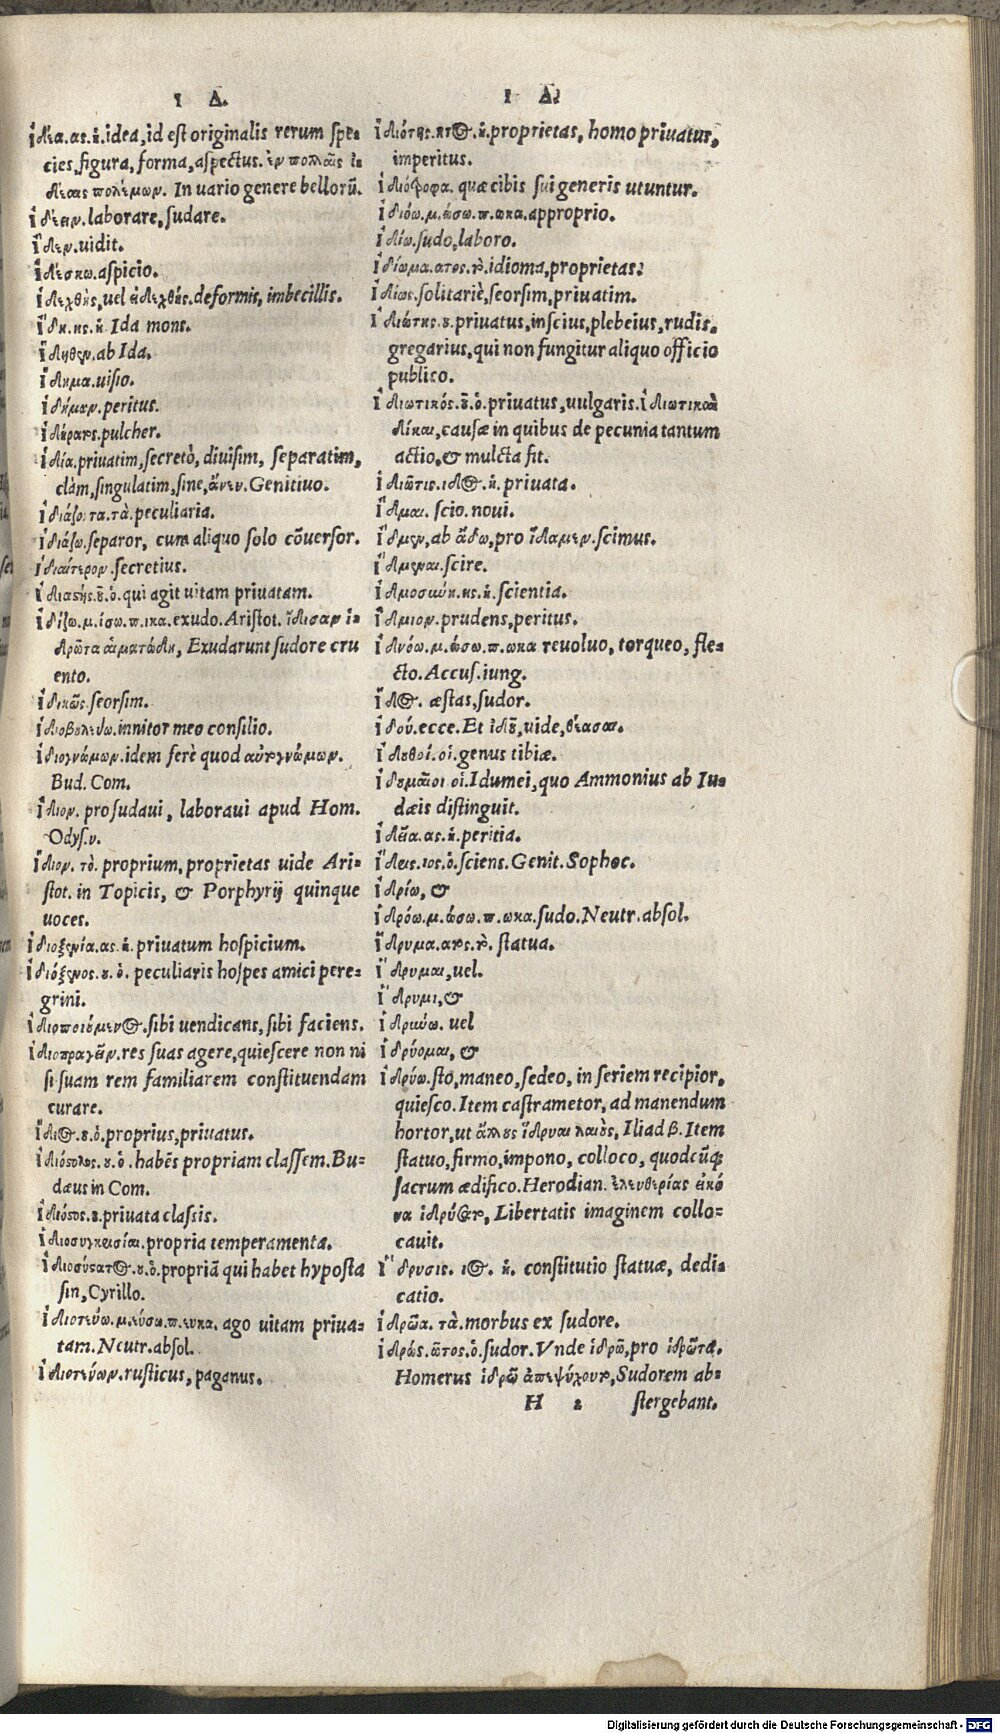 Ι Δ.
ἰδέα.ας.ἡ.idea,id est originalis rerum spe-
cies,figura,forma,aspectus.ἐν πολλαῖς ἰ-
δέαις πολέμων. In uario genere bellorũ.
ἰδίειν.laborare,sudare.
ἴδεν.uidit.
ἰδέσκω.aspicio.
ἰδεχθὴς,uel εἰδεχθής.deformis, imbecillis.
ἴδη.ης.ἡ Ida mons.
ἴδηθεν.ab Ida.
ἴδημα.uisio.
ἰδήμων.peritus.
ἰδήρατος.pulcher.
ἰδία.priuatim,secretò, diuisim, separatim,
clàm,singulatim,sine,ἄνευ.Genitiuo.
ἰδιάζοντα.τὰ.peculiaria.
ἰδιάζω.separor, cum aliquo solo cõuersor.
ἰδιαίτερον.secretius.
ἰδιαστής.οῦ.ὁ.qui agit uitam priuatam.
ἰδίζω.μ.ίσω.π.ικα.exudo.Aristot. ἴδισαν ἱ-
δρῶτα αἱματώδη, Exudarunt sudore cru
ento.
ἰδικῶς.seorsim.
ἰδιοβουλεύω.innitor meo consilio.
ἰδιογνώμων.idem ferè quod αὐτογνώμων.
Bud. Com.
ἴδιον. prosudaui, laboraui apud Hom.
Odys.υ.
ἴδιον. τὸ. proprium, proprietas uide Ari-
stot. in Topicis, & Porphyrij quinque
uoces.
ἰδιοξενία.ας.ἡ. priuatum hospicium.
ἰδιόξενος.ου.ὁ. peculiaris hospes amici pere-
grini.
ἰδιοποιούμενος.sibi uendicans, sibi faciens.
ἰδιοπραγεῖν.res suas agere,quiescere non ni
si suam rem familiarem constituendam
curare.
ἴδιος.ου.ὁ.proprius,priuatus.
ἰδιόστολος.ου.ὁ. habẽs propriam classem.Bu-
dæus in Com.
ἰδιόστος.ου.priuata classis.
ἰδιοσυγκρισίαι.propria temperamenta.
ἰδιοσύστατος.ου.ὁ.propriã qui habet hyposta
sin,Cyrillo.
ἰδιοτεύω.μ.εύσω.π.ευκα. ago uitam priua-
tam.Neutr.absol.
ἰδιοτεύων.rusticus, paganus.
Ι Δ.
ἰδιότης.ητος.ἡ.proprietas, homo priuatus,
imperitus.
ἰδιότροφα. quæ cibis sui generis utuntur.
ἰδιόω.μ.ώσω.π.ωκα.approprio.
ἰδίω.sudo,laboro.
ἰδίωμα.ατος.τὸ.idioma,proprietas:
ἰδίως.solitariè,seorsim,priuatim.
ἰδιώτης.ου.priuatus,inscius,plebeius,rudis,
gregarius,qui non fungitur aliquo officio
publico.
ἰδιωτικός.οῦ.ὁ.priuatus,uulgaris.ἰδιωτικαὶ
δίκαι,causæ in quibus de pecunia tantum
actio,& mulcta fit.
ἰδιῶτις.ιδος.ἡ. priuata.
ἴδμαι. scio.noui.
ἴδμεν,ab εἴδω,pro ἴδαμεν.scimus.
ἴδμεναι.scire.
ἰδμοσύνη.ης.ἡ. scientia.
ἴδμιον.prudens,peritus.
ἰδνόω.μ.ώσω.π.ωκα reuoluo, torqueo, fle-
cto.Accus.iung.
ἶδος. æstas,sudor.
ἰδού.ecce.Et ἰδοῦ,uide,θέασαι.
ἰδουθοί.οἱ.genus tibiæ.
ἰδουμαῖοι οἱ.Idumei,quo Ammonius ab Iu-
dæis distinguit.
ἰδεῖα.ας.ἡ.peritia.
ἴδεις.ιος.ὁ.sciens.Genit.Sophoc.
ἰδρίω, &
ἱδρόω.μ.ώσω.π.ωκα.sudo.Neutr.absol.
ἵδρυμα.ατος.τὸ. statua.
ἵδρυμαι,uel.
ἵδρυμι,&
ἱδρωύω. uel
ἱδρύομαι, &
ἱδρύω.sto,maneo,sedeo, in seriem recipior,
quiesco.Item castrametor, ad manendum
hortor,ut ἄλλους ἵδρυσαι λαοὺς, Iliad β. Item
statuo,firmo,impono, colloco, quodcũq;
sacrum ædifico.Herodian. ἐλευθερίας εἰκό
να ἱδρύσατο, Libertatis imaginem collo-
cauit.
ἵδρυσις. ιος. ἡ. constitutio statuæ, dedi-
catio.
ἱδρῶα. τὰ.morbus ex sudore.
ἱδρώς.ῶτος.ὁ.sudor.Vnde ἱδρῶ,pro ἱδρῶτα.
Homerus ἱδρῶ ἀπεψύχοντο,Sudorem ab-
H 2 stergebant.
Digitalisierung gefördert durch die Deutsche Forschungsgemeinschaft - DFG